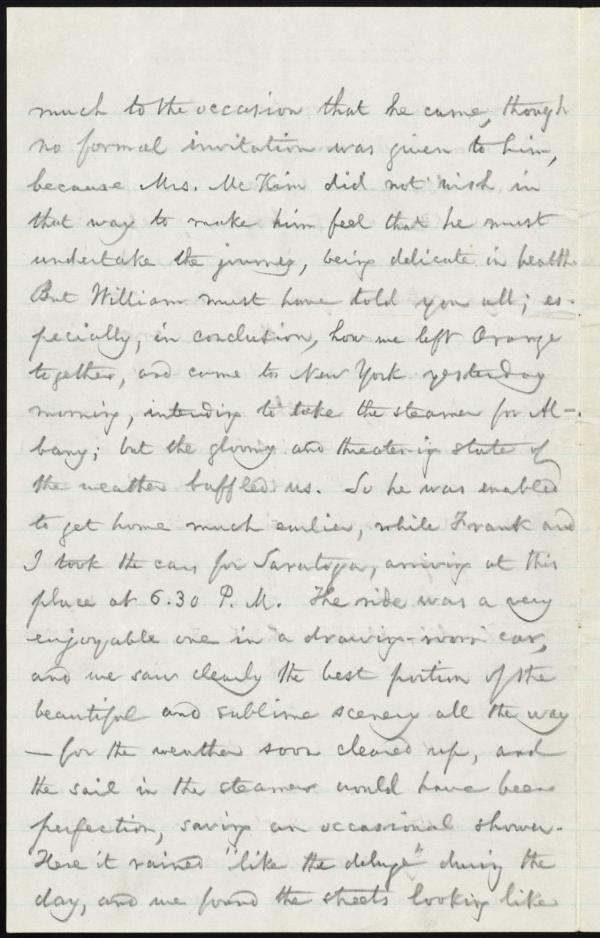 much to the occasion that he came, though
no formal invitation was given to him,
because Mrs. McKim did not wish in
that way to make him feel that he must
undertake the journey, being delicate in health.
But William must have told you all; es-
pecially, in conclusion, how we left Orange
together, and came to New York yesterday
morning, intending to take the steamer for Al-
bany; but the gloomy and threatening state of
the weather baffled us. So he was enabled
to get home much earlier, while Frank and
I took the cars for Saratoga, arriving at this
place at 6.30 P. M. The ride was a very
enjoyable one in a drawing-room car,
and we saw clearly the best portion of the
beautiful and sublime scenery all the way
— for the weather soon cleared up, and
the sail in the steamer would have been
perfection, saving an occasional shower.
Here it rained "like the deluge" during the
day, and we found the streets looking like